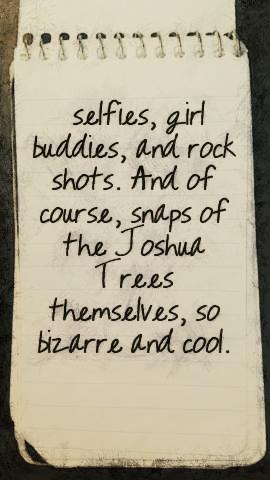 selfies, girl
buddies, and rock
shots. And of
course, snaps of
the Joshua
Trees
themselves, so
bizarre and cool.